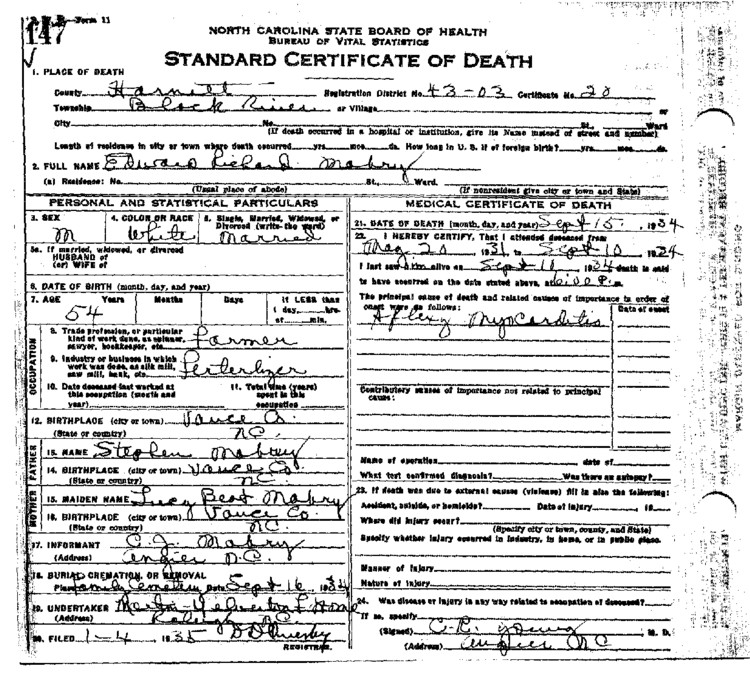 Form 11
147
NORTH CAROLINA STATE BOARD OF HEALTH
BUREAU OF VITAL STATISTICS
STANDARD CERTIFICATE OF DEATH
1. PLACE OF DEATH
County Harnett Registration District No. 43-03 Certificate No. 20
Township Black River or Village or
City No. St., Ward
(If death occurred in a hospital or institution, give its Name instead of street and number)
Length of residence in city or town where death occurred yrs. mos. ds. How long in U. S. if of foreign birth? yrs. mos. ds.
2. FULL NAME Edward Richard Mabry
(a) Residence: No. St., Ward.
(Usual place of abode) (If nonresident give city or town and State)
PERSONAL AND STATISTICAL PARTICULARS
3. SEX 4. COLOR OR RACE 5. Single, Married, Widowed, or
Divorced (write the word)
M White Married
5a. If married, widowed, or divorced
HUSBAND of
(or) WIFE of
6. DATE OF BIRTH (month, day, and year)
7. AGE Years Months Days If LESS than
1 day, hrs.
54 or min.
OCCUPATION
8. Trade profession, or particular
kind of work done, as spinner,
sawyer, bookkeeper, etc. Farmer
9. Industry or business in which
work was done, as silk mill,
saw mill, bank, etc. Ferterlizer
10. Date deceased last worked at
this occupation (month and
year)
11. Total time (years)
spent in this
occupation
12. BIRTHPLACE (city or town) Vance Co.
(State or country) N.C.
FATHER
13. NAME Stephen Mabry
14. BIRTHPLACE (city or town) Vance Co
(State or country) N.C.
MOTHER
15. MAIDEN NAME Lucy Mabry
16. BIRTHPLACE (city or town) Vance Co.
(State or country) N.C.
17. INFORMANT C. J. Mabry
(Address) Angier N.C.
18. BURIAL, CREMATION, OR REMOVAL
Place Family Cemetery Date Sept 16, 1934
19. UNDERTAKER Home
(Address) Raleigh N.C.
20. FILED 1-4, 1935
REGISTRAR.
MEDICAL CERTIFICATE OF DEATH
21. DATE OF DEATH (month, day, and year) Sept 15, 1934
22. I HEREBY CERTIFY, That I attended deceased from
May 20 1931, to Sept 10, 1934
I last saw him alive on Sept 1934 death is said
to have occurred on the date stated above, at
The principal cause of death and related causes of importance in order of
onset were as follows: Date of onset
Myocarditis
Contributory causes of importance not related to principal
cause:
Name of operation date of
What test confirmed diagnosis? Was there an autopsy?
23. If death was due to external causes (violence) fill in also the following:
Accident, suicide, or homicide? Date of injury 19
Where did injury occur?
(Specify city or town, county, and State)
Specify whether injury occurred in industry, in home, or in public place.
Manner of injury
Nature of injury
24. Was disease or injury in any way related to occupation of deceased?
If so, specify
(Signed) C. R. Young M. D.
(Address) Angier NC